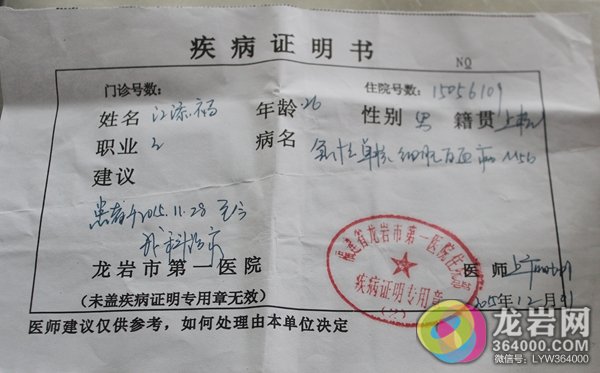 疾病证明书
NO
门诊号数: 住院号数: 15056109
姓名 江添福 年龄 26 性别 男 籍贯 上杭
职业 工 病名 急性单核细胞白血病 M5b
建议
患者于2015.11.28 至今
我科治疗
龙岩市第一医院 医师
(未盖疾病证明专用章无效) 2015年12月
医师建议仅供参考，如何处理由本单位决定
福建省龙岩市第一医院
疾病证明专用章
(2)
龙岩网
364000.COM
微信号: LYW364000